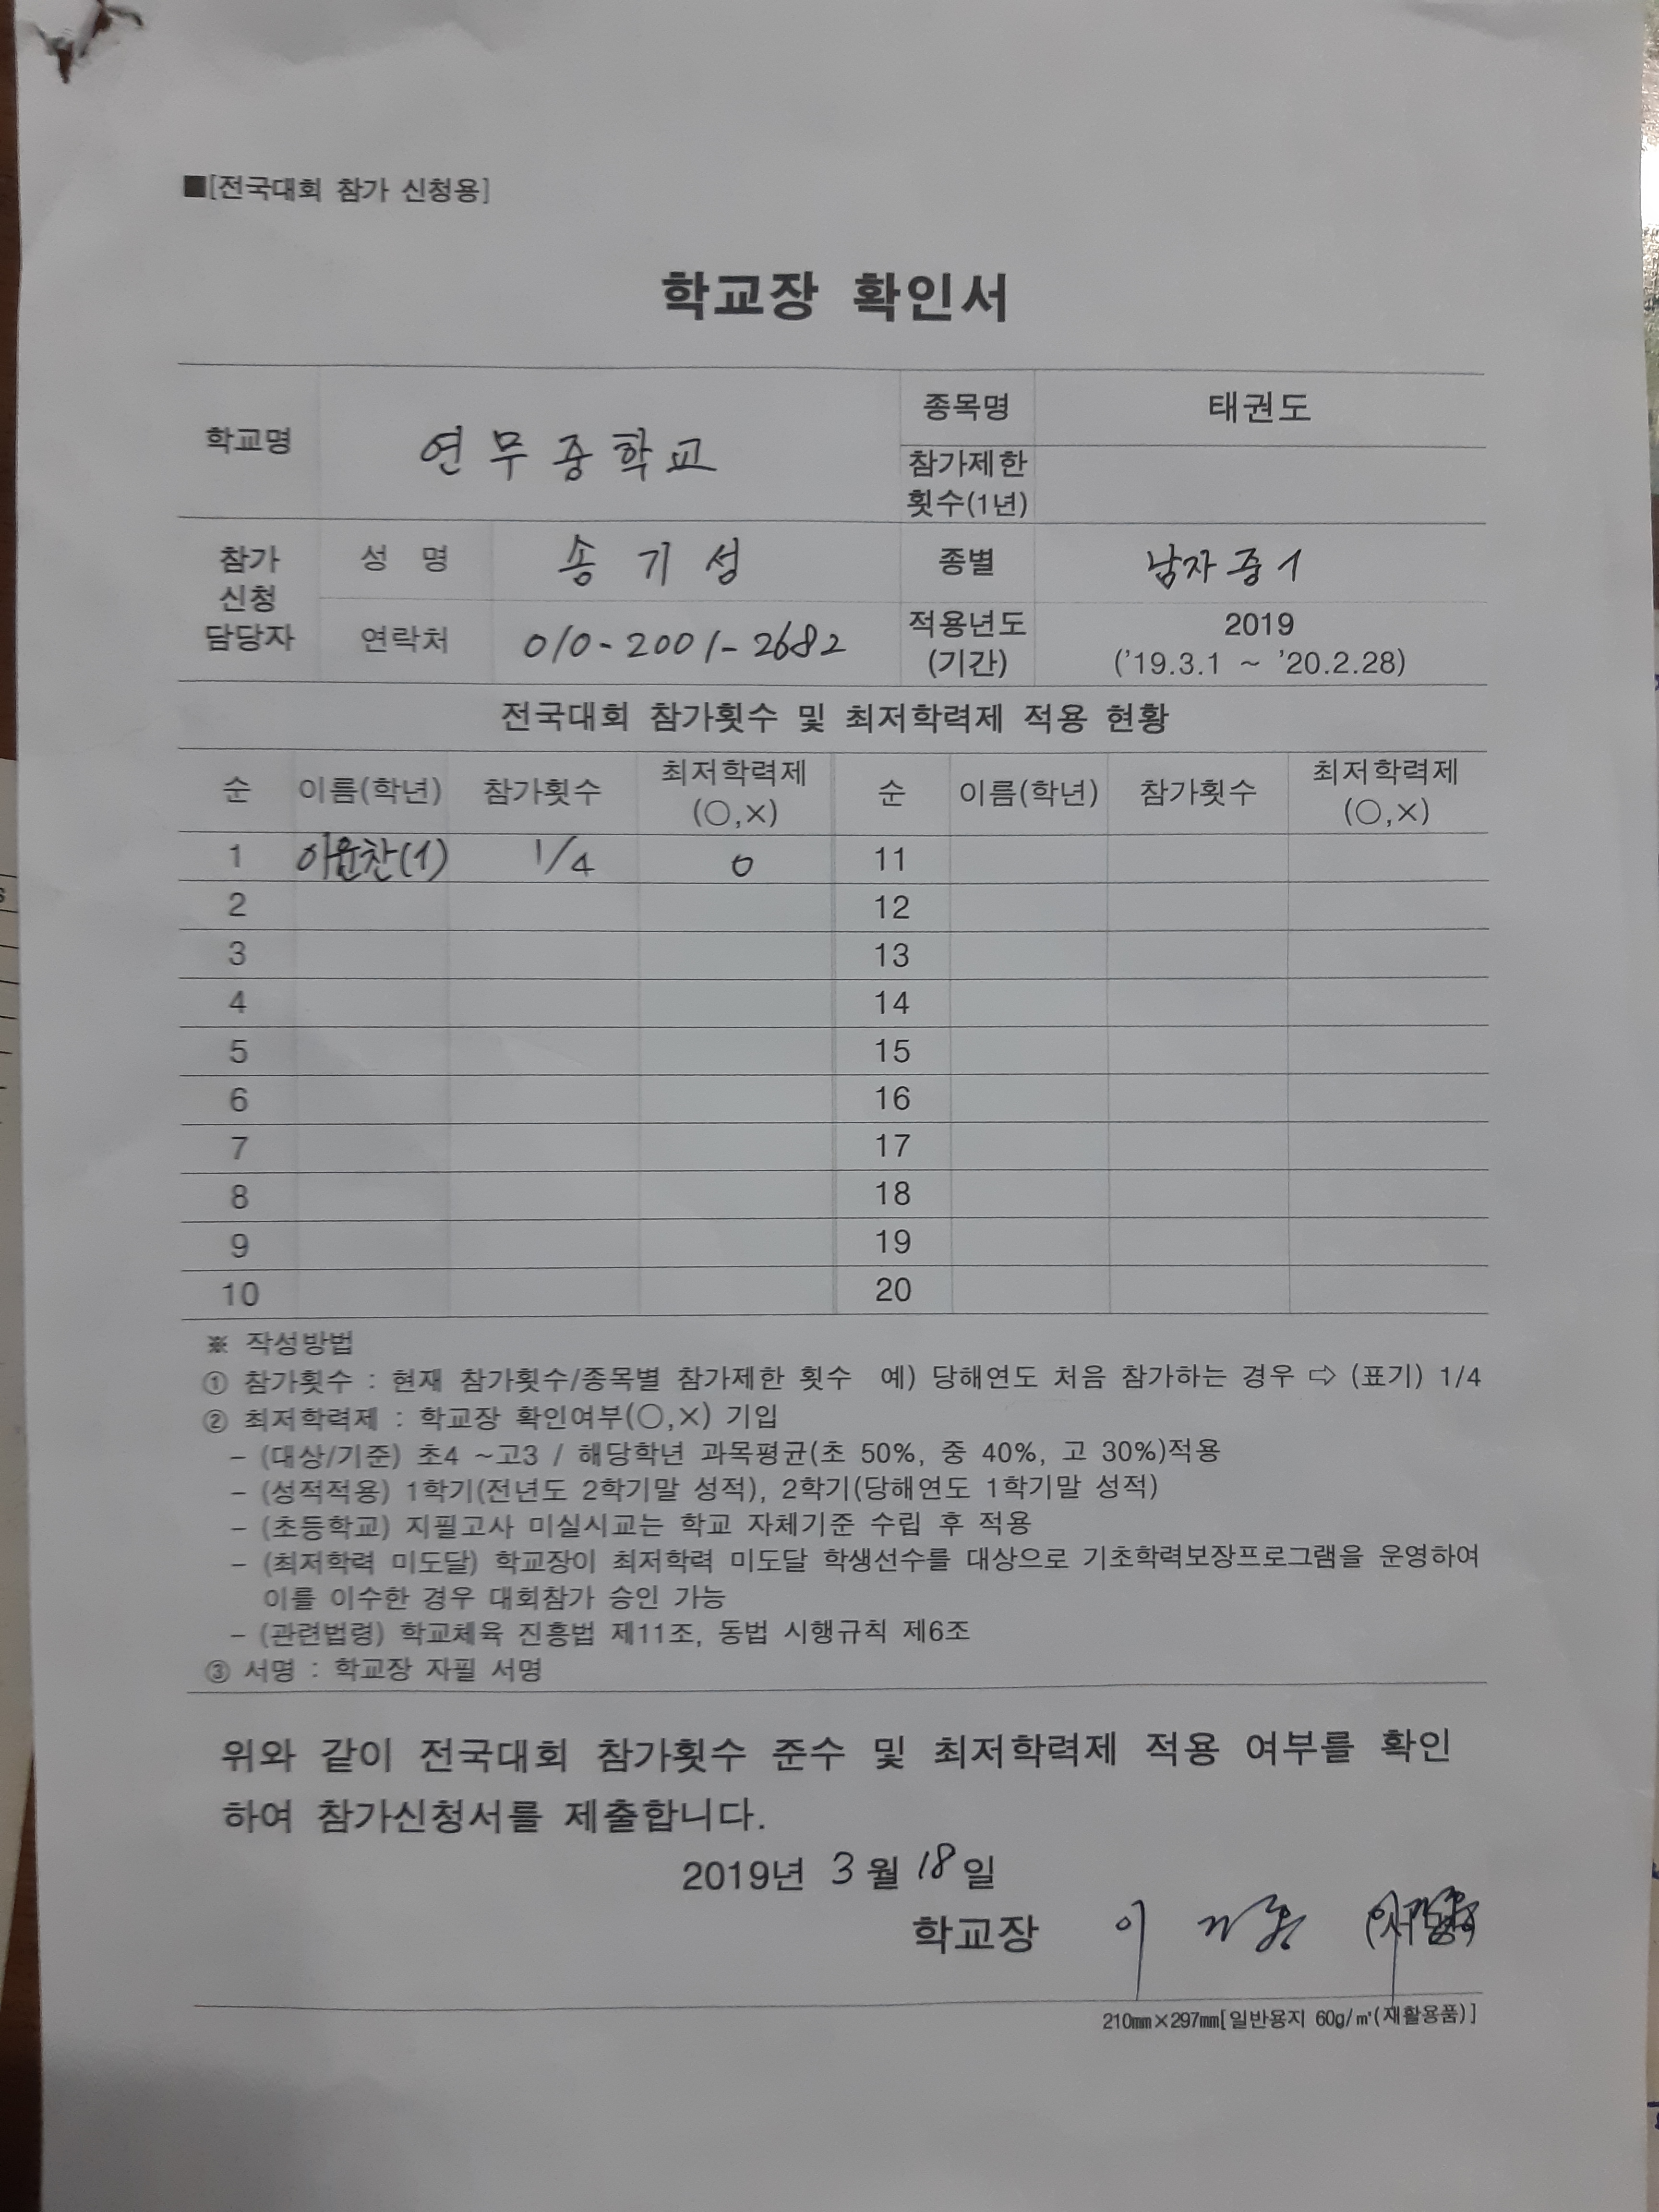 ■[전국대회 참가 신청용]
학교장 확인서
학교명 연무중학교 종목명 태권도
참가제한 횟수(1년)
참가 신청 담당자 성 명 송기성 종별 남자중1
연락처 010-2001-2682 적용년도 (기간) 2019 ('19.3.1 ~ '20.2.28)
전국대회 참가횟수 및 최저학력제 적용 현황
순 이름(학년) 참가횟수 최저학력제 (○,×) 순 이름(학년) 참가횟수 최저학력제 (○,×)
1 이윤찬(1) 1/4 o 11
2 12
3 13
4 14
5 15
6 16
7 17
8 18
9 19
10 20
※ 작성방법
① 참가횟수 : 현재 참가횟수/종목별 참가제한 횟수 예) 당해연도 처음 참가하는 경우 ⇨ (표기) 1/4
② 최저학력제 : 학교장 확인여부(○,×) 기입
- (대상/기준) 초4 ~고3 / 해당학년 과목평균(초 50%, 중 40%, 고 30%)적용
- (성적적용) 1학기(전년도 2학기말 성적), 2학기(당해연도 1학기말 성적)
- (초등학교) 지필고사 미실시교는 학교 자체기준 수립 후 적용
- (최저학력 미도달) 학교장이 최저학력 미도달 학생선수를 대상으로 기초학력보장프로그램을 운영하여
이를 이수한 경우 대회참가 승인 가능
- (관련법령) 학교체육 진흥법 제11조, 동법 시행규칙 제6조
③ 서명 : 학교장 자필 서명
위와 같이 전국대회 참가횟수 준수 및 최저학력제 적용 여부를 확인
하여 참가신청서를 제출합니다.
2019년 3월 18일
학교장 이 (서명)
210㎜×297㎜[일반용지 60g/㎡(재활용품)]